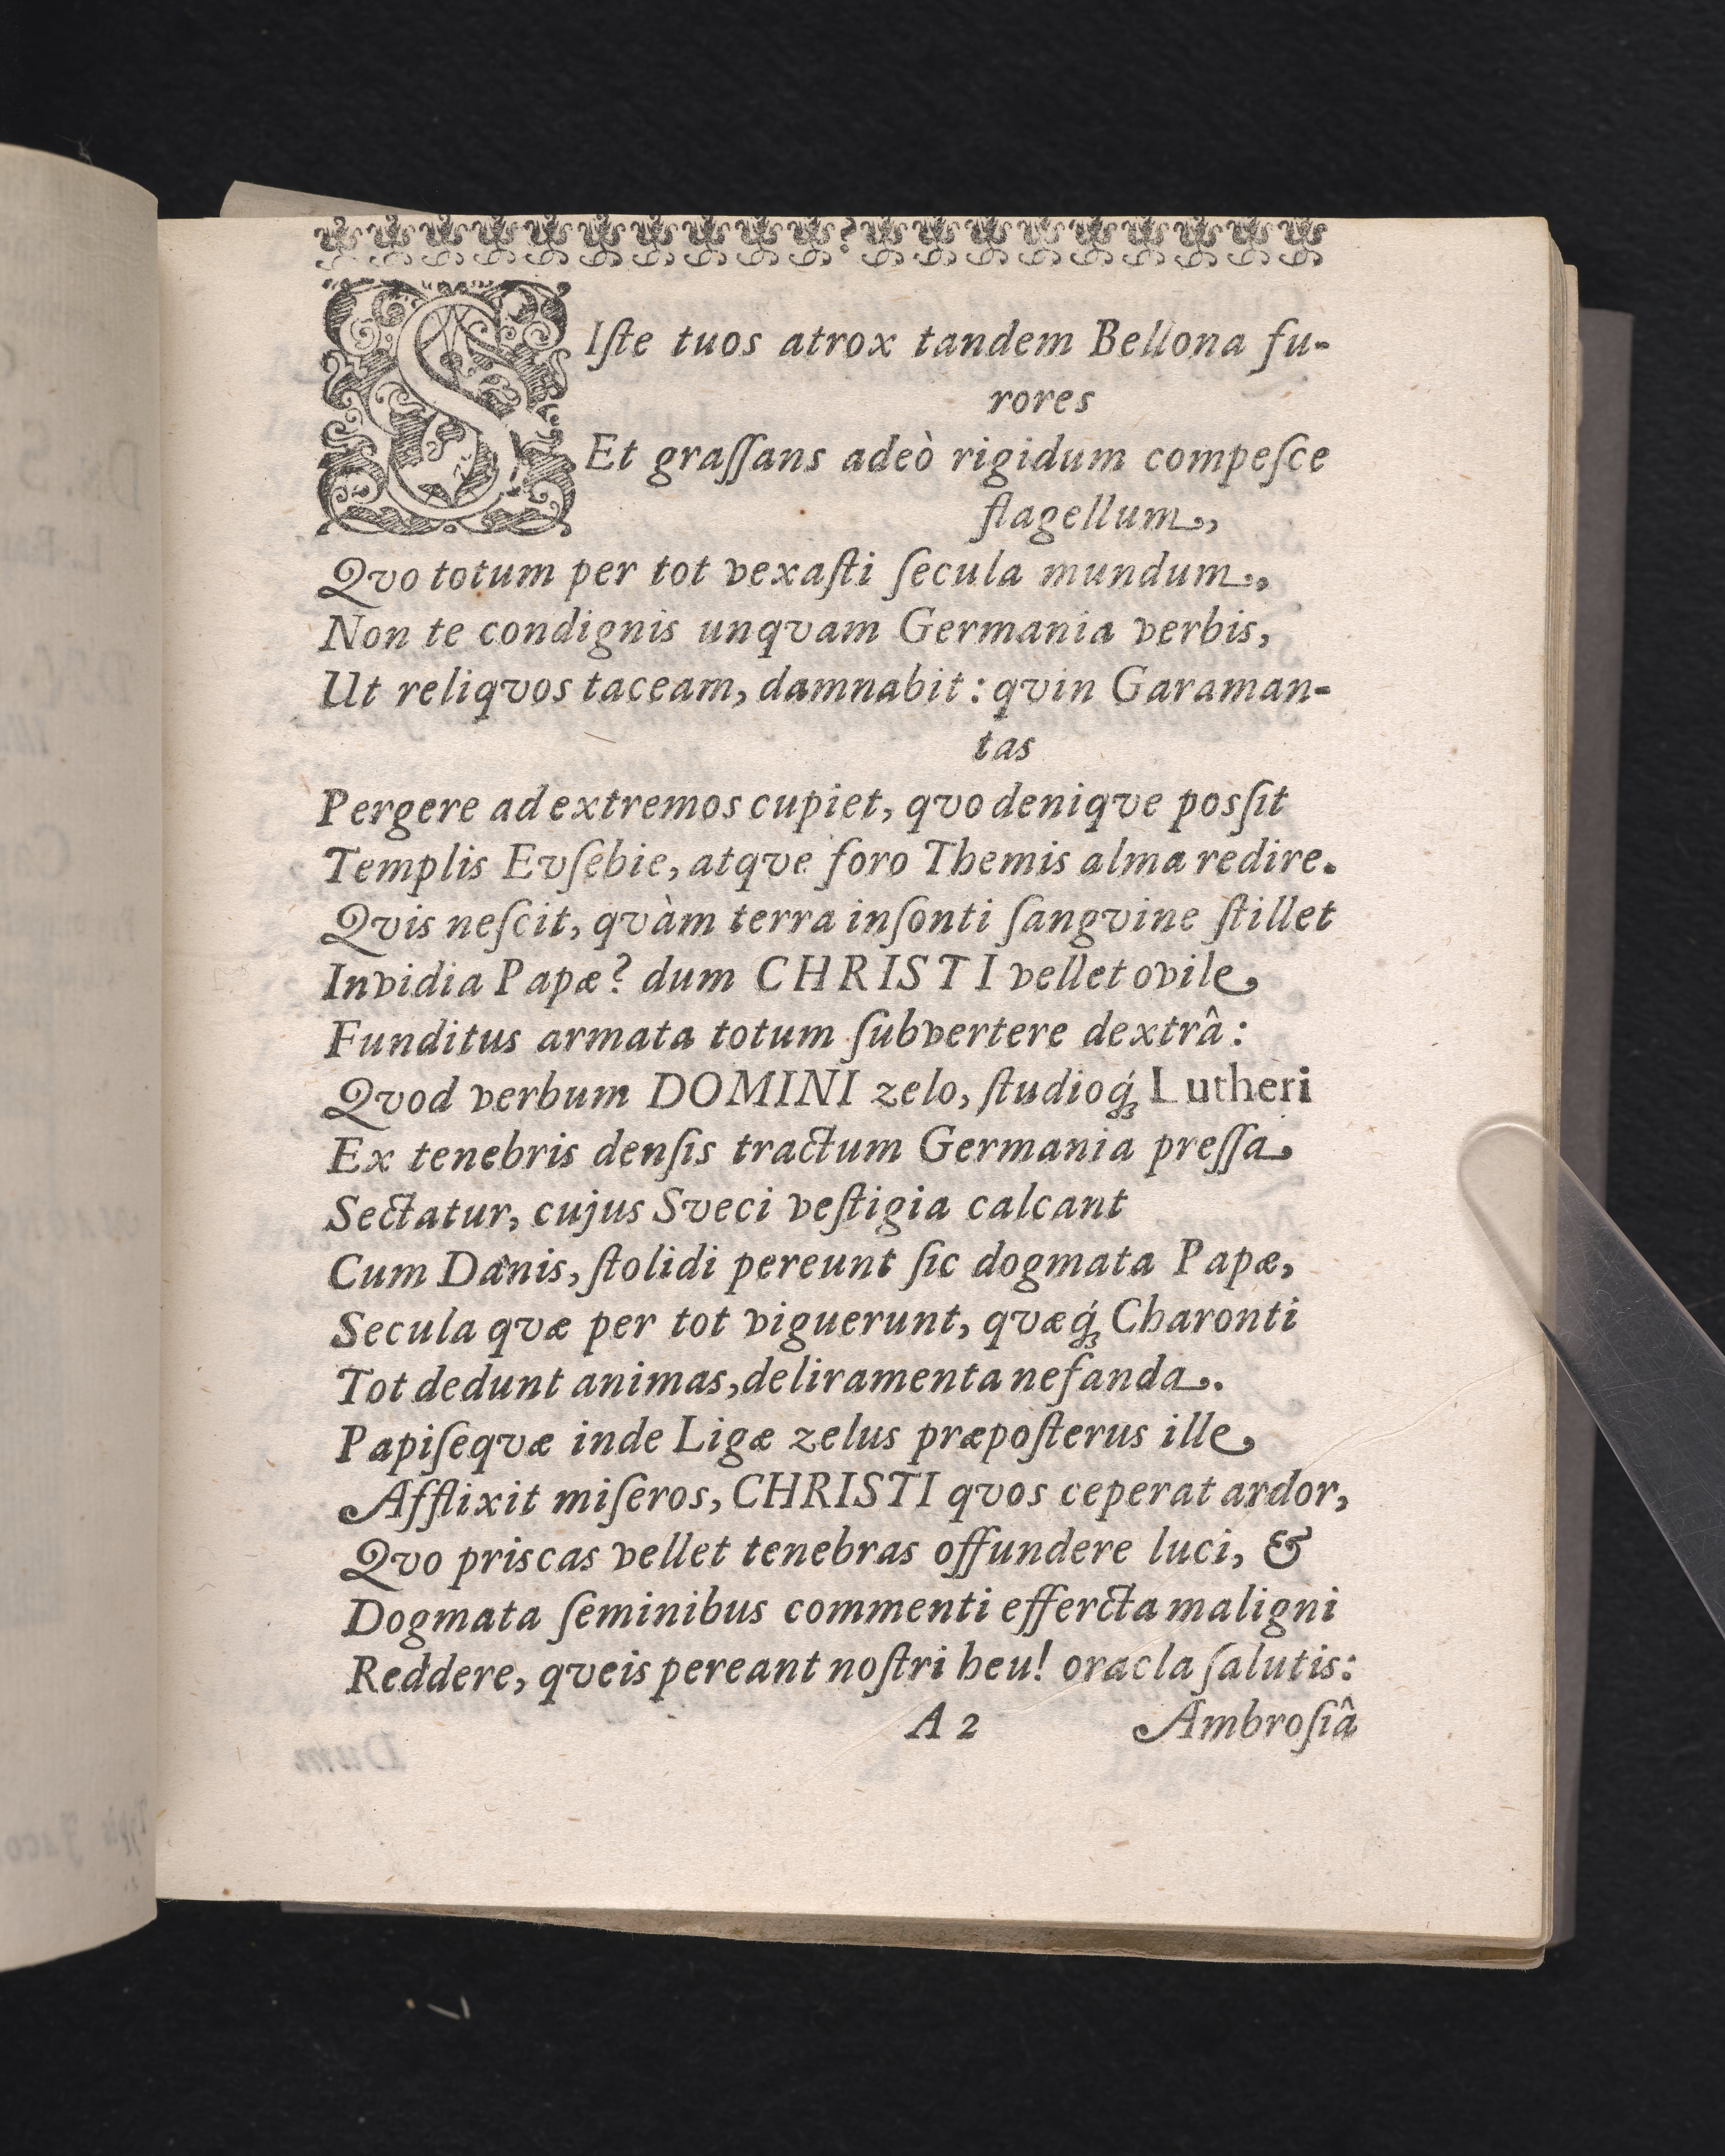 SIſte tuos atrox tandem Bellona fu-
rores
Et graſſans adeò rigidum compeſce
flagellum,
Qvo totum per tot vexaſti ſecula mundum.
Non te condignis unqvam Germania verbis,
Ut reliqvos taceam, damnabit: qvin Garaman-
tas
Pergere ad extremos cupiet, qvo deniqve posſit
Templis Evſebie, atqve foro Themis alma redire.
Qvis neſcit, qvàm terra inſonti ſangvine ſtillet
Invidia Papæ? dum CHRISTI vellet ovile
Funditus armata totum ſubvertere dextrâ:
Qvod verbum DOMINI zelo, ſtudioq́ꝫ Lutheri
Ex tenebris denſis tractum Germania preſſa
Sectatur, cujus Sveci veſtigia calcant
Cum Danis, ſtolidi pereunt ſic dogmata Papæ,
Secula qvæ per tot viguerunt, qvæq́ꝫ Charonti
Tot dedunt animas, deliramenta nefanda.
Papiſeqvæ inde Ligæ zelus præpoſterus ille
Afflixit miſeros, CHRISTI qvos ceperat ardor,
Qvo priscas vellet tenebras offundere luci, &
Dogmata ſeminibus commenti efferctа maligni
Reddere, qveis pereant noſtri heu! oracla ſalutis:
A 2 Ambroſiâ